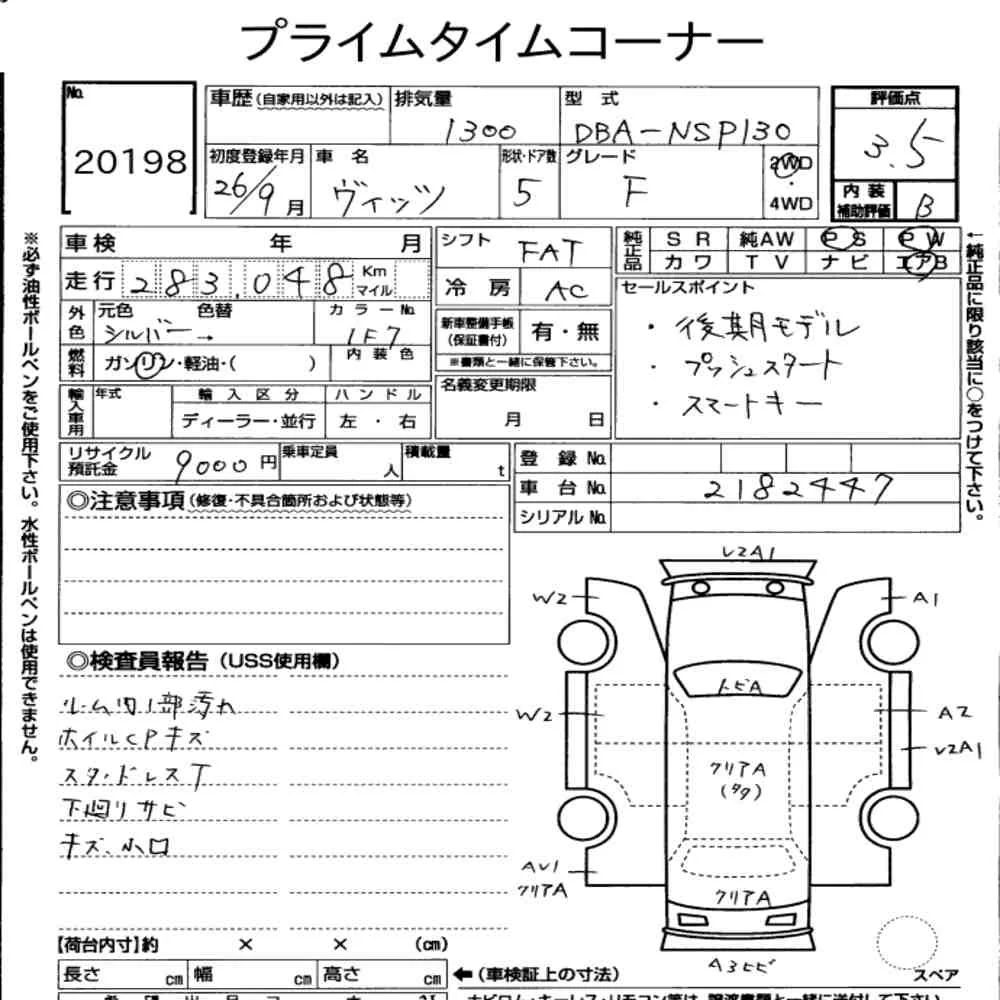 プライムタイムコーナー
No.
20198
車歴(自家用以外は記入)
排気量
1300
型 式
DBA-NSP130
評価点
3.5
初度登録年月
26/9月
車 名
ヴィッツ
形状・ドア数
5
グレード
F
2WD
・
4WD
内 装
補助評価
B
※必ず油性ボールペンをご使用下さい。水性ボールペンは使用できません。
車検 年 月
シフト FAT
純正品
SR 純AW PS PW
カワ TV ナビ エアB
←純正品に限り該当に○をつけて下さい。
走行 283,048 Km
マイル
冷 房 AC
セールスポイント
・後期モデル
・プッシュスタート
・スマートキー
外色
元色 色替
シルバー→
カラーNo.
1F7
新車整備手帳
(保証書付)
有・無
※書類と一緒に保管下さい。
燃料
ガソリン・軽油・( )
内装色
名義変更期限
月 日
輸入車用
年式
輸入区分
ディーラー・並行
ハンドル
左・右
リサイクル
預託金
9000円
乗車定員
人
積載量
t
登 録 No.
車 台 No. 2182447
シリアル No.
◎注意事項(修復・不具合箇所および状態等)
◎検査員報告(USS使用欄)
ルーム内1部汚れ
ホイルCPキズ
スタッドレスT
下廻りサビ
キズ、小凹
V2A1
W2
A1
トビA
W2
A2
V2A1
クリアA
(タタ)
AU1
クリアA
クリアA
A3ヒビ
スペア
【荷台内寸】約 × × (cm)
長さ cm
幅 cm
高さ cm
←(車検証上の寸法)